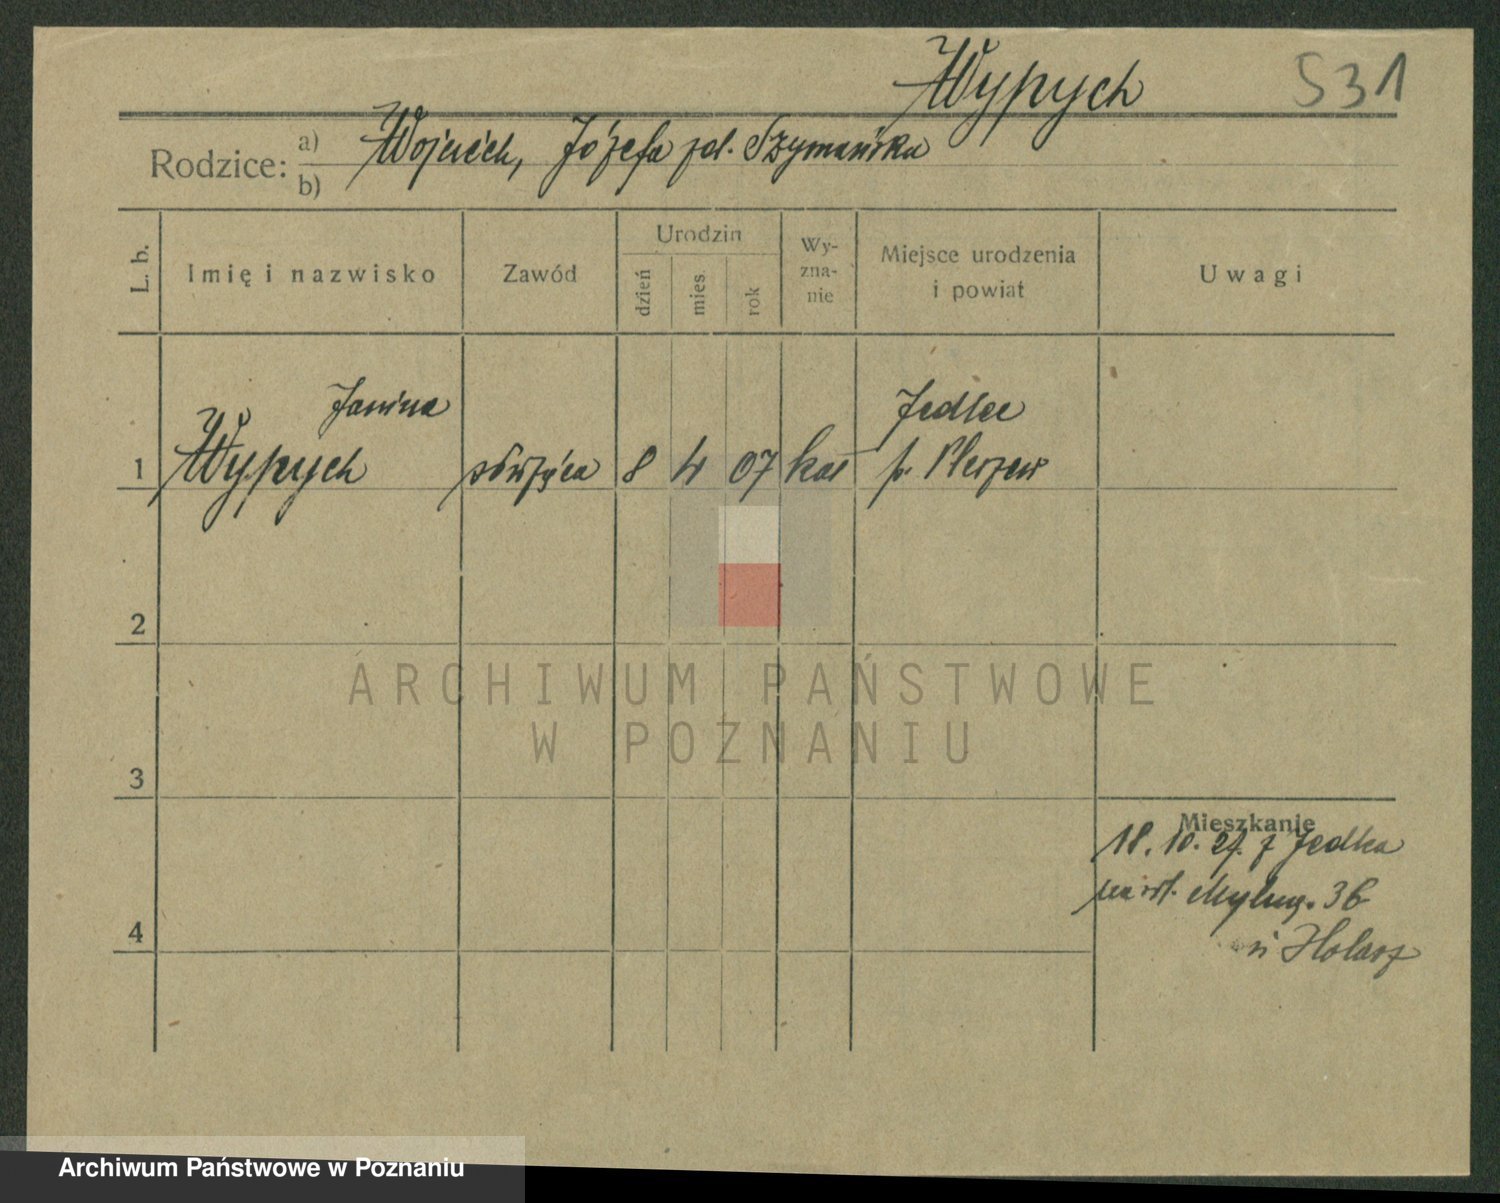 Wypych
531
Rodzice:
a) Wojciech, Józefa zd. Szymańska
b)
L. b.
Imię i nazwisko
Zawód
Urodzin
dzień
mies
rok
Wy-
zna-
nie
Miejsce urodzenia
i powiat
Uwagi
Janina
1 Wypych
8 4 07 kat
Jedlec
p. Pleszew
2
3
4
Mieszkanie
18. 10. 27. z Jedlca
36
Archiwum Państwowe
w Poznaniu
Archiwum Państwowe w Poznaniu